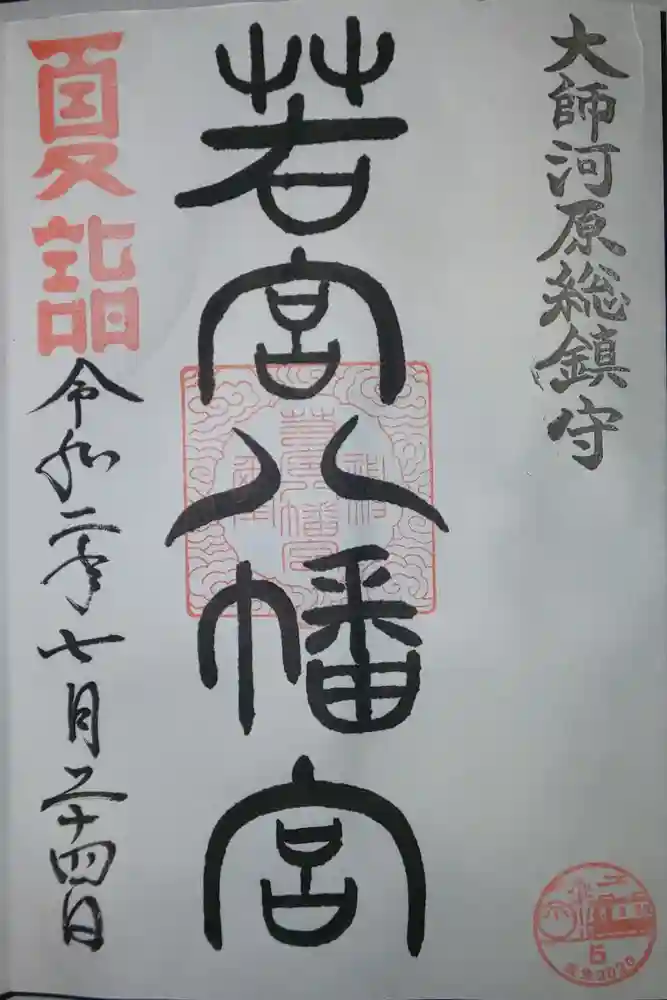 大師河原総鎮守
若宮八幡宮
夏詣
令和二年七月二十四日
5
2020